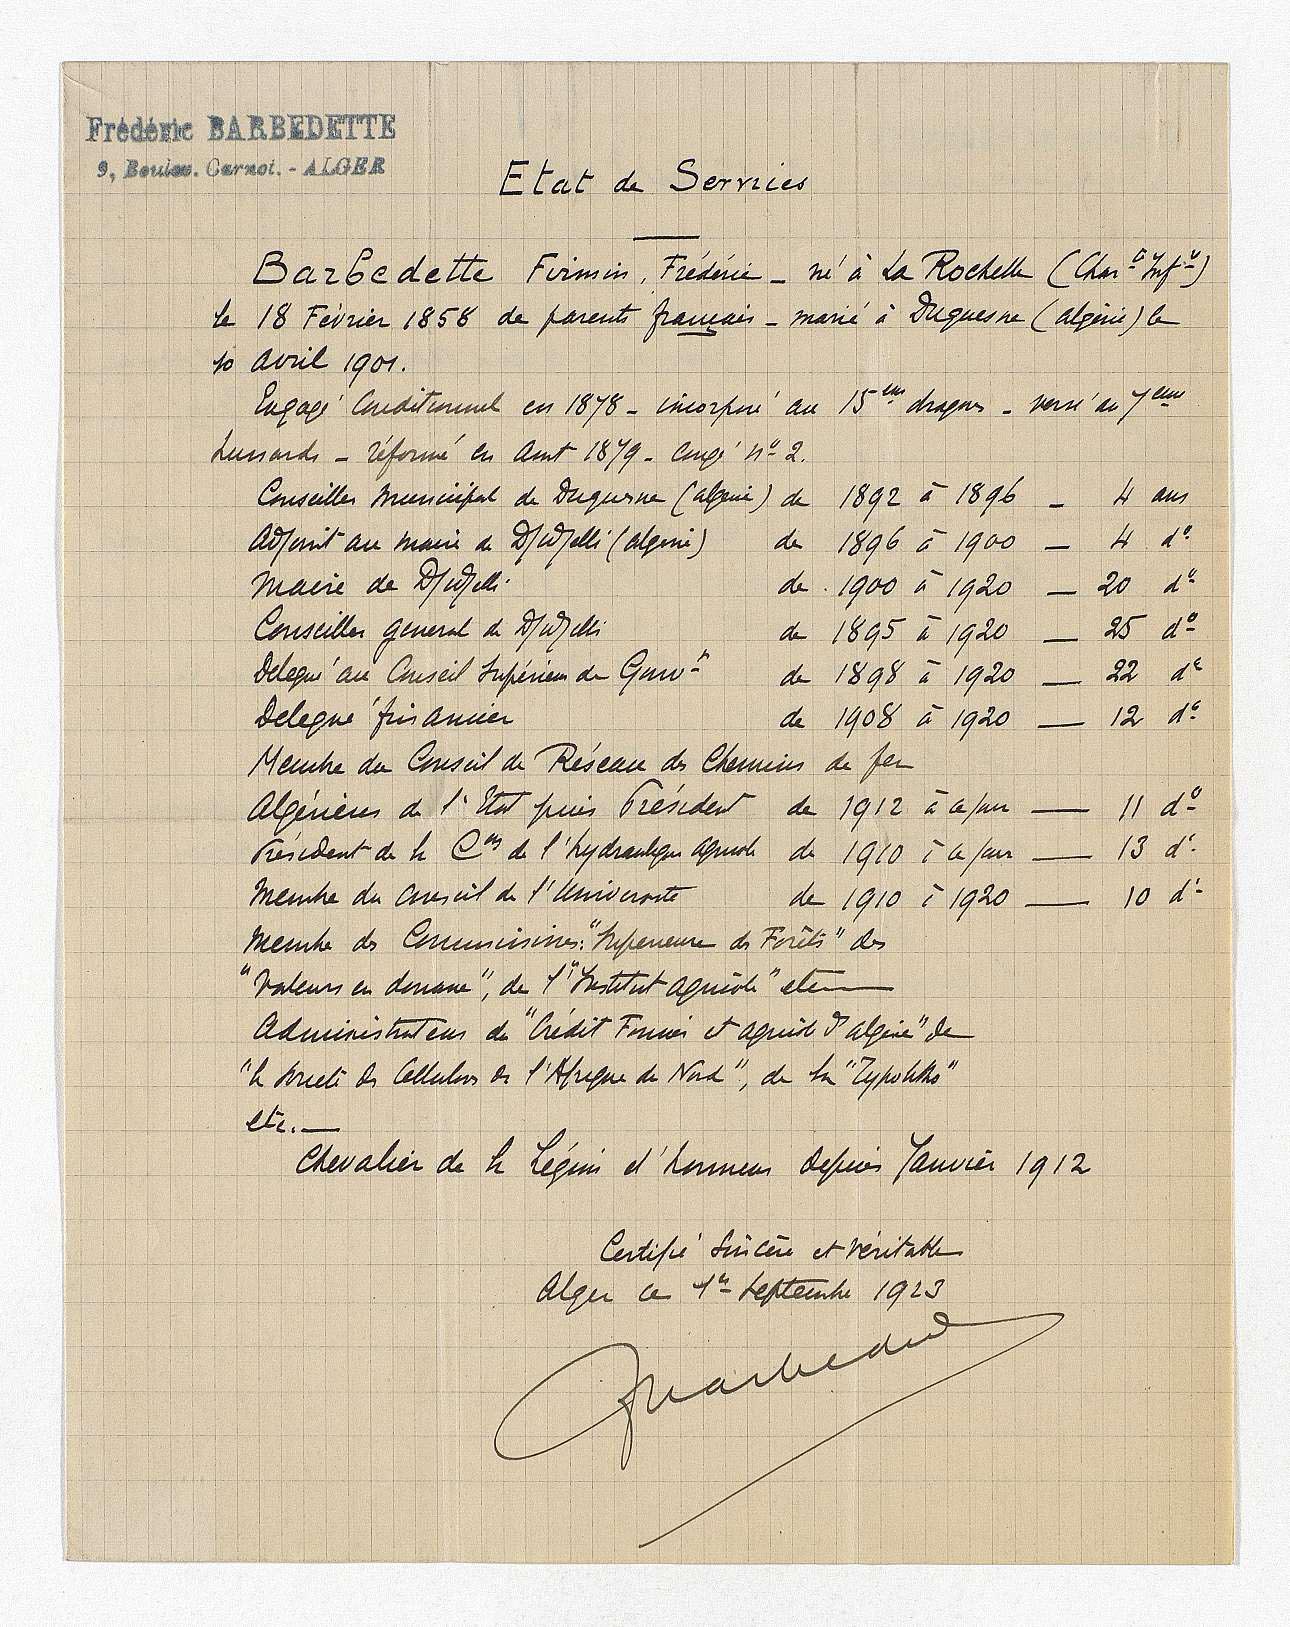 Frédéric BARBEDETTE
9, Boulev. Carnot. - ALGER
Etat de Services
Barbedette Firmin, Frédéric - né à La Rochelle (Charte Infre)
le 18 Février 1858 de parents français - marié à Duquesne (algérie) le
10 avril 1901.
Engagé Conditionnel en 1878 - incorporé au 15ème dragons - versé au 7ème
hussards - réformé en Aout 1879 - congé no 2.
Conseiller Municipal de Duquesne (algérie) de 1892 à 1896 - 4 ans
Adjoint au maire de Djidjelli (algérie) de 1896 à 1900 - 4 do
Maire de Djidjelli de 1900 à 1920 - 20 do
Conseiller général de Djidjelli de 1895 à 1920 - 25 do
Delegué au Conseil Supérieur de Gouvt de 1898 à 1920 - 22 do
Delegué financier de 1908 à 1920 - 12 do
Membre du Conseil de Réseau des Chemins de fer
Algériens de l'Etat puis Président de 1912 à ce jour - 11 do
Président de la Con de l'hydraulique agricole de 1910 à ce jour - 13 do
Membre du conseil de l'Université de 1910 à 1920 - 10 do
Membre des Commissions: "Superieure des Forêts" des
"Valeurs en douane", de l'"Institut agricole" etc
Administrateur du "Crédit Foncier et agricole d'algérie" de
"la Société des Celluloses de l'Afrique du Nord", de la "Typolitho"
etc.
Chevalier de la Légion d'honneur depuis Janvier 1912
Certifié Sincère et véritable
Alger ce 1er Septembre 1923
FBarbedette